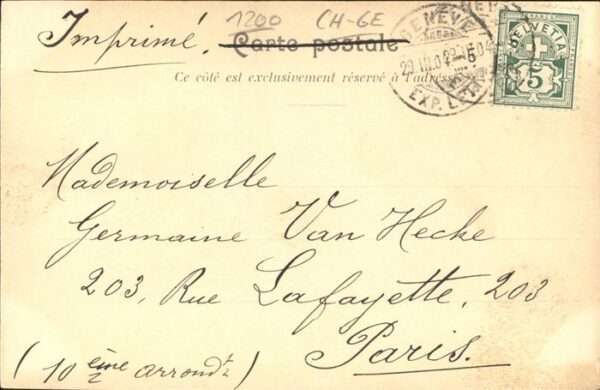 1200 CH-GE
Imprimé. Carte postale
Ce côté est exclusivement réservé à l'adresse
GENÈVE
EXP. LETT
HELVETIA
5
Mademoiselle
Germaine Van Hecke
203, Rue Lafayette, 203
Paris.
(10ème arrondt)